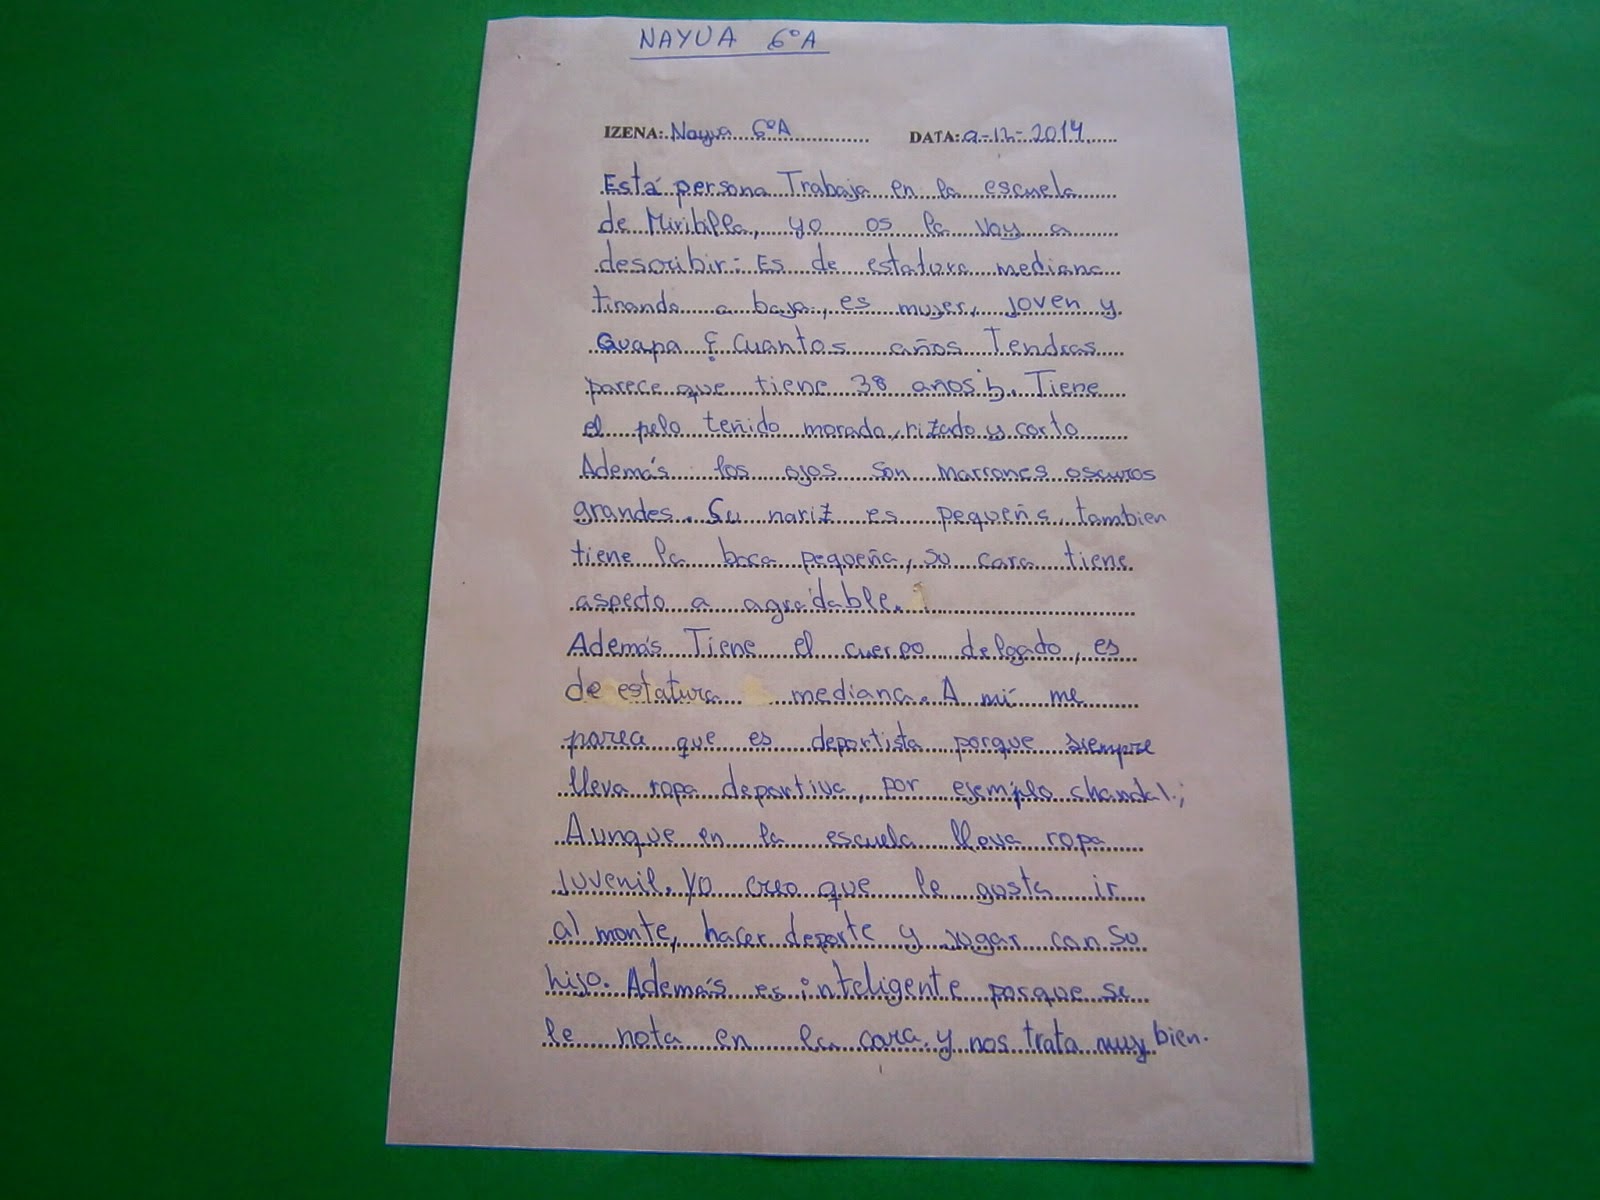 NAYUA 6ºA
IZENA: Nayua 6ºA DATA: 9-12-2014
Está persona Trabaja en la escuela
de Miribilla, yo os la voy a
describir: Es de estatura mediana
tirando a baja, es mujer, joven y
Guapa ¿Cuantos años Tendras
parece que tiene 38 años?. Tiene
el pelo teñido morado, rizado y corto
Además los ojos son marrones oscuros
grandes. Su nariz es pequeña, tambien
tiene la boca pequeña, su cara tiene
aspecto a agradable.
Además Tiene el cuerpo delgado, es
de estatura mediana. A mí me
parece que es deportista porque siempre
lleva ropa deportiva, por ejemplo chandal.;
Aunque en la escuela lleva ropa
juvenil. Yo creo que le gusta ir
al monte, hacer deporte y jugar con su
hijo. Además es inteligente porque se
le nota en la cara. y nos trata muy bien.